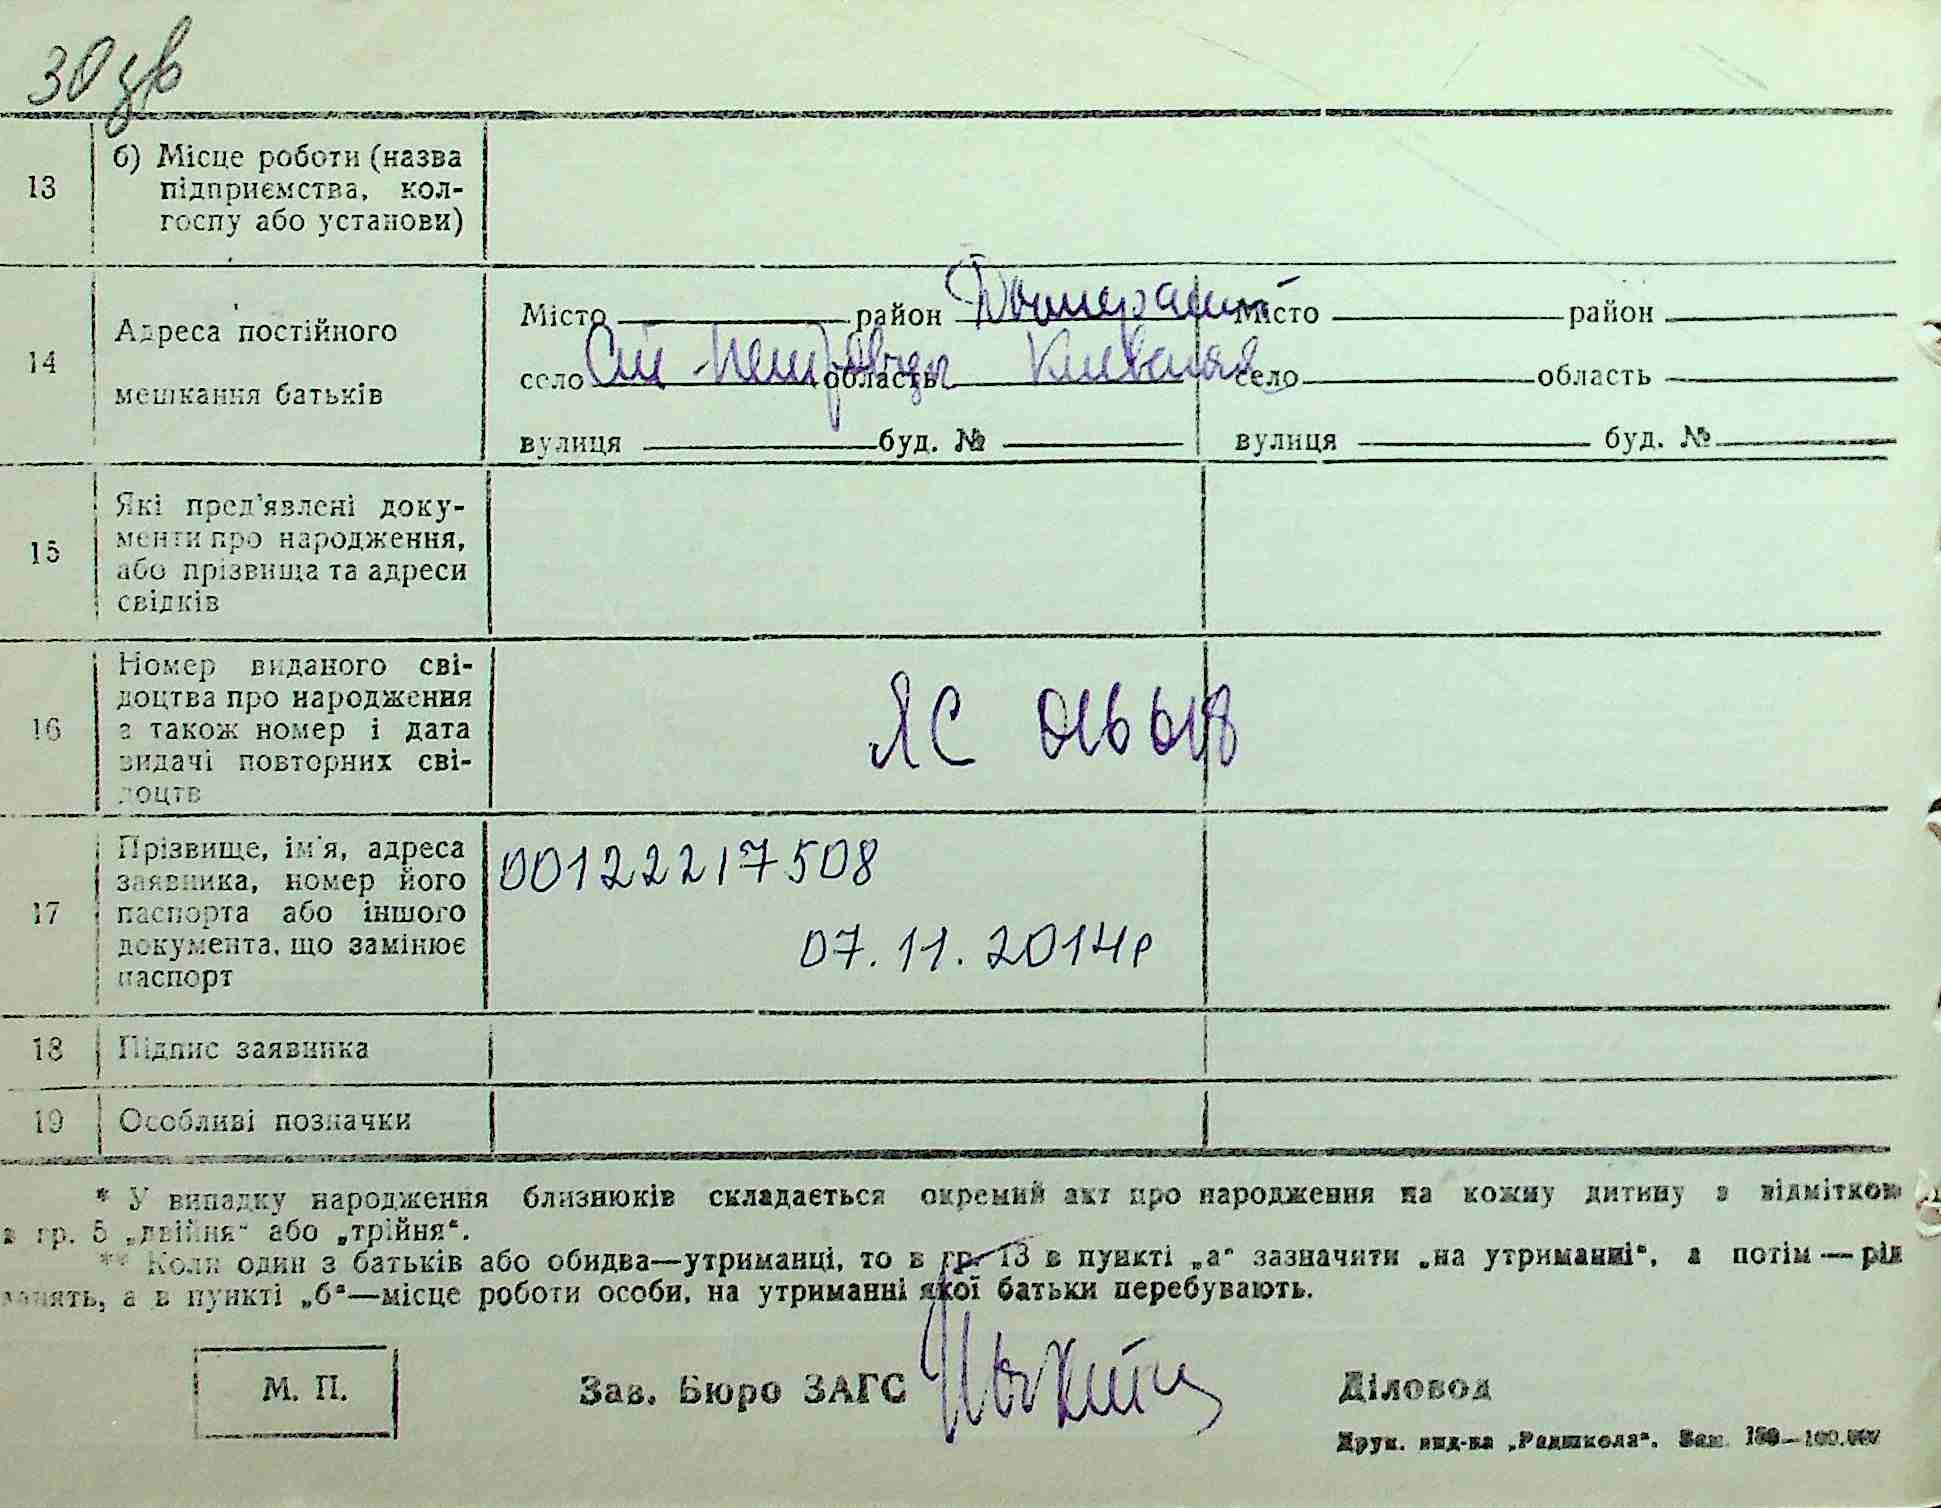 30 зв
13 б) Місце роботи (назва
підприємства, кол-
госпу або установи)
Місто район Димерський Місто район
14 Адреса постійного
село область Київська село область
мешкання батьків
вулиця буд. № вулиця буд. №
15 Які пред'явлені доку-
менти про народження,
або прізвища та адреси
свідків
16 Номер виданого сві-
доцтва про народження
а також номер і дата
видачі повторних сві-
доцтв
ЯС 016618
17 Прізвище, ім'я, адреса
заявника, номер його
паспорта або іншого
документа, що замінює
паспорт
00122217508
07.11.2014р
18 Підпис заявника
19 Особливі позначки
* У випадку народження близнюків складається окремий акт про народження на кожну дитину з відміткою
в гр. 5 „двійня“ або „трійня“.
** Коли один з батьків або обидва—утриманці, то в гр. 13 в пункті „а“ зазначити „на утриманні“, а потім — рід
занять, а в пункті „б“—місце роботи особи, на утриманні якої батьки перебувають.
М. П. Зав. Бюро ЗАГС Діловод
Друк. вид-ва „Радшкола“. Зам. 150—100.000